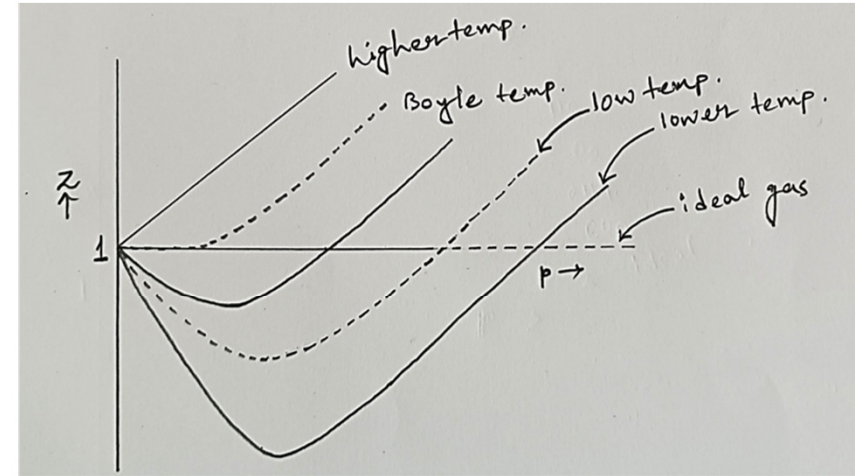 higher temp.
Boyle temp.
low temp.
lower temp.
ideal gas
Z
↑
1
p →